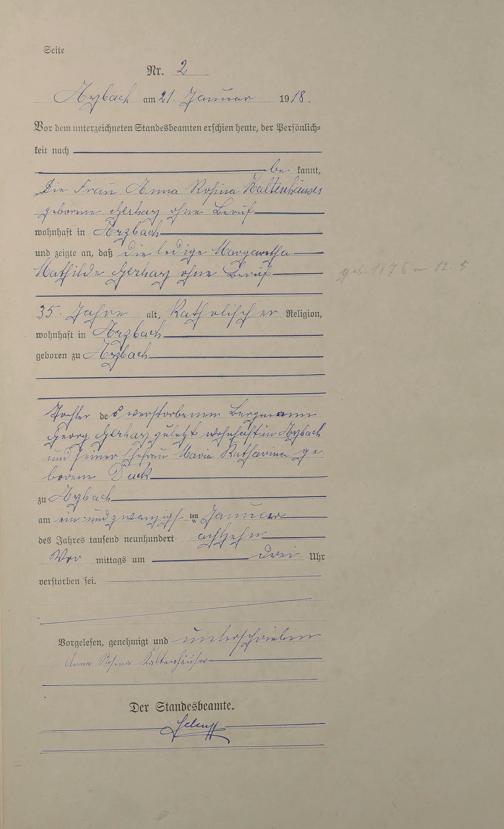 Seite
Nr. 2
Arzbach am 21. Januar 1918.
Vor dem unterzeichneten Standesbeamten erschien heute, der Persönlich-
keit nach
be kannt,
die Frau Anna Rosina Kaltenhäuser
geborene Gerhaz ohne Beruf
wohnhaft in Arzbach
und zeigte an, daß die ledige Margaretha
Mathilde Gerhaz ohne Beruf
geb. 1876
35 Jahre alt, Katholisch er Religion,
wohnhaft in Arzbach
geboren zu Arzbach
Tochter des verstorbenen Bergmann
Georg Gerhaz zuletzt wohnhaft in Arzbach
und seiner Ehefrau Maria Katharina ge
borene
zu Arzbach
am ein und zwanzigsten Januar
des Jahres tausend neunhundert achtzehn
Vor mittags um drei Uhr
verstorben sei.
Vorgelesen, genehmigt und unterschrieben
Anna Rosina Kaltenhäuser
Der Standesbeamte.